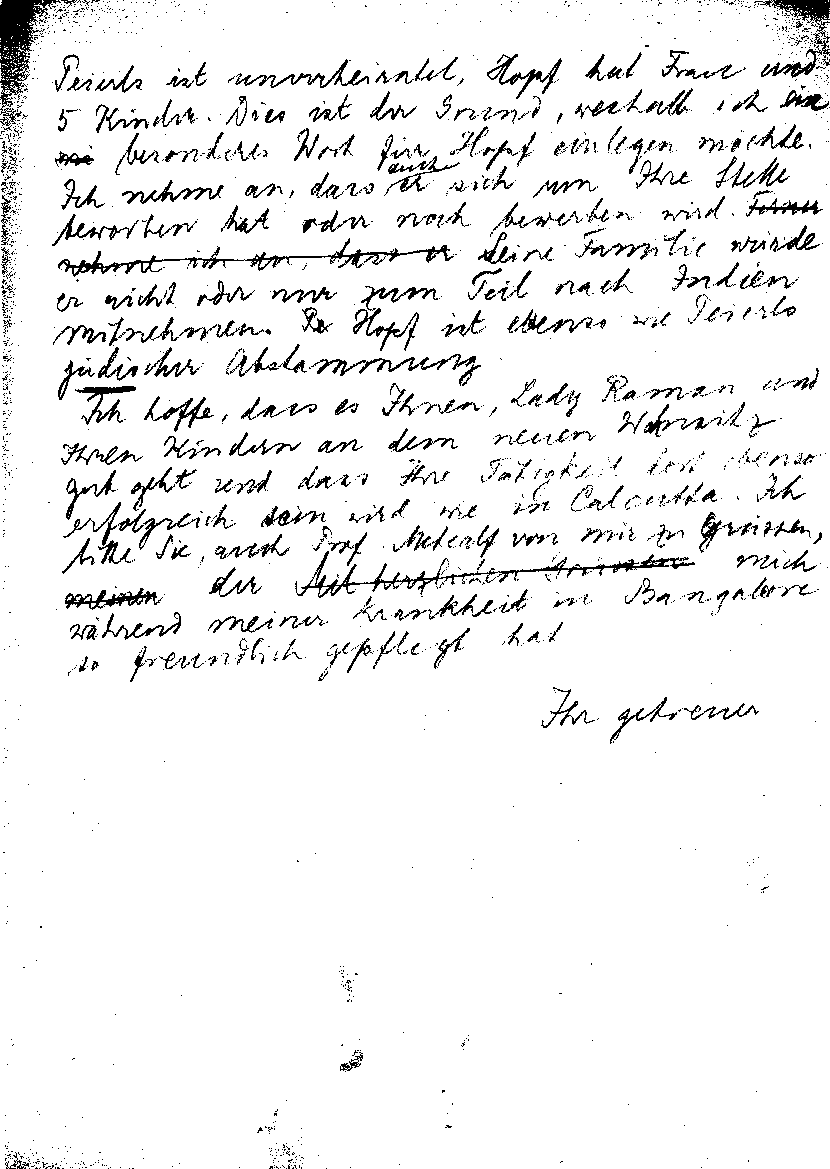 Peierls ist unverheiratet, Hopf hat Frau und
5 Kinder. Dies ist der Grund, weshalb ich ein
besonderes Wort für Hopf einlegen möchte.
Ich nehme an, dass auch er sich um Ihre Stelle
beworben hat oder noch bewerben wird. Ferner
nehme ich an, dass er Seine Familie würde
er nicht oder nur zum Teil nach Indien
mitnehmen. Hopf ist ebenso wie Peierls
jüdischer Abstammung
Ich hoffe, dass es Ihnen, Lady Raman und
Ihren Kindern an dem neuen Wohnsitz
gut geht und dass Ihre Tätigkeit dort ebenso
erfolgreich sein wird wie in Calcutta. Ich
bitte Sie, auch Prof. Metcalf von mir zu grüssen,
meinen der Mit herzlichen Grüssen mich
während meiner Krankheit in Bangalore
so freundlich gepflegt hat
Ihr getreuer